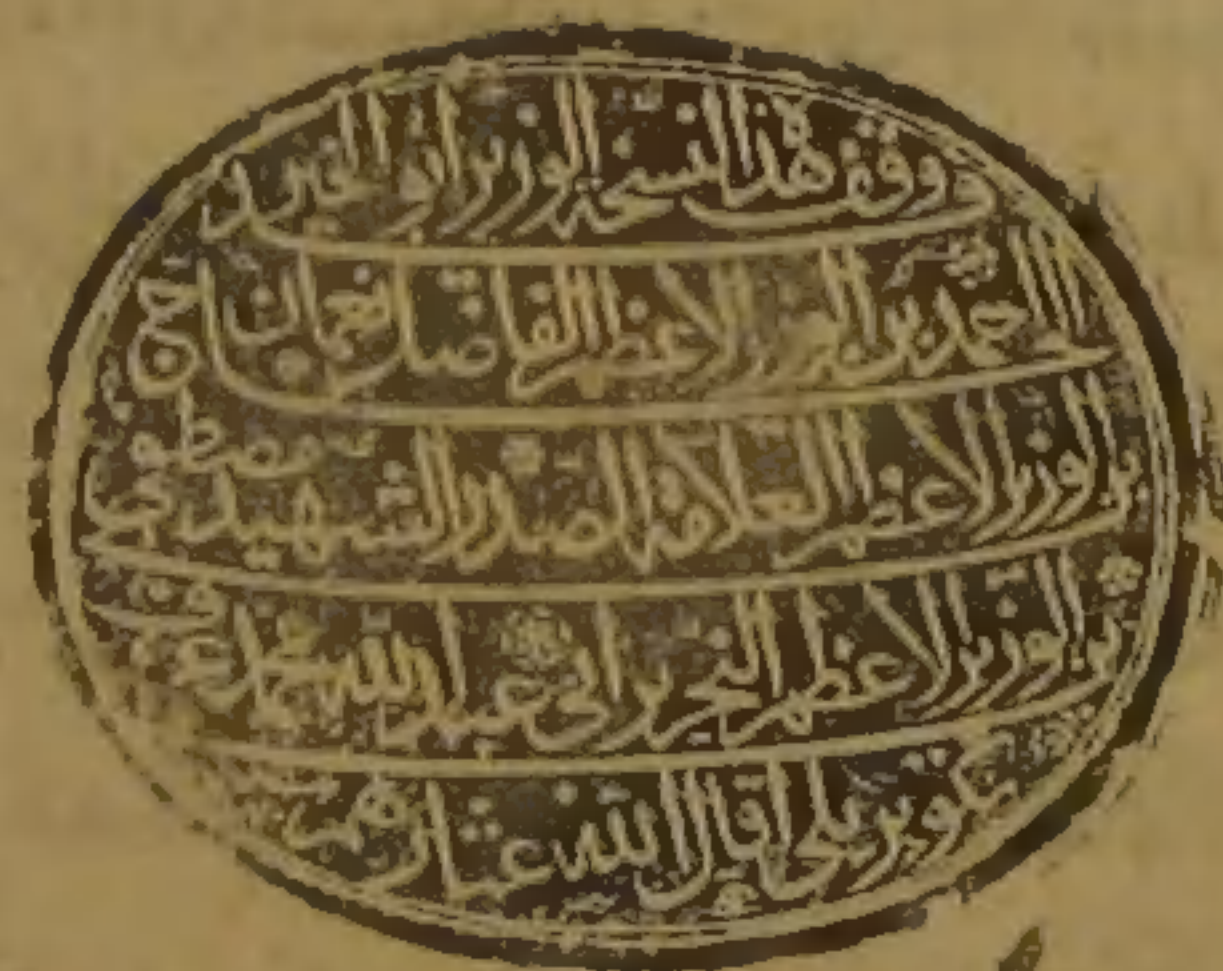 و وقف هذا النسخة الوزير ابو الخير
الحاج احمد بن الوزير الاعظم الفاضل نعمان
بن الوزير الاعظم العلامة الصدر الشهيد مصطفى
بن الوزير الاعظم النحرير ابي عبد الله محمد عرف
بكوبريلي اقال الله عثارهم